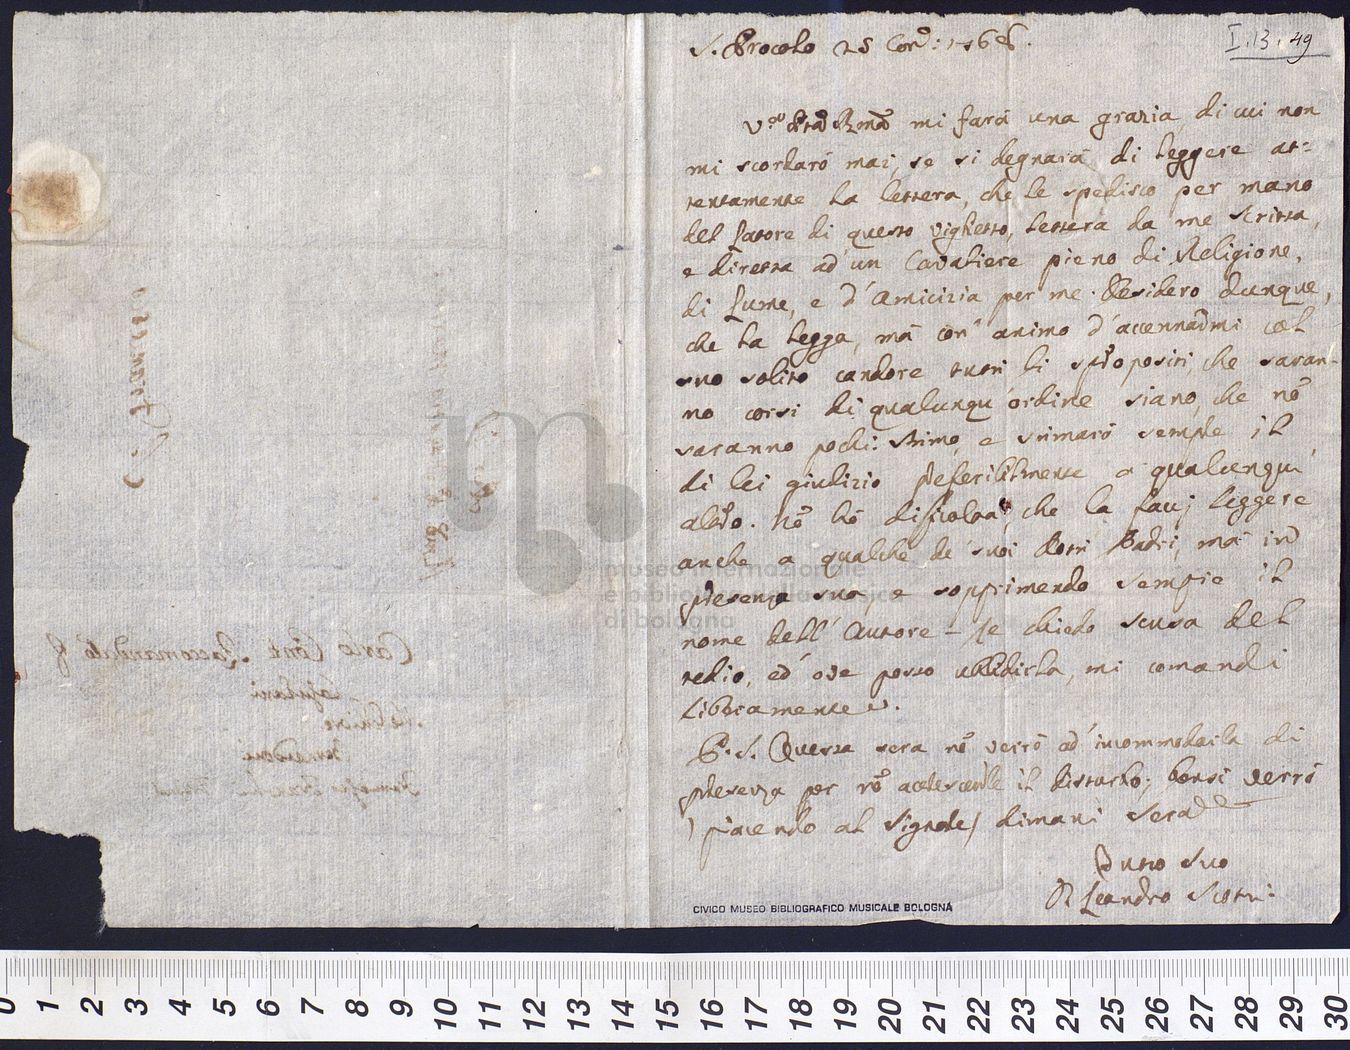 I. 13. 49
S. Procolo 25 Corr.: 1766.
V.ra Ptà Rma mi farà una grazia, di cui non
mi scordarò mai, se si degnarà di leggere at=
tentamente la lettera, che le spedisco per mano
del latore di questo viglietto, lettera da me scritta,
e diretta ad un Cavaliere pieno di Religione,
di lume, e d'amicizia per me. Desidero dunque,
che la legga, mà con animo d'accennarmi col
suo solito candore tutti li spropositi, che saran-
no corsi di qualunqu'ordine siano, che nõ
saranno pochi: Stimo, e stimarò sempre il
di lei giudizio preferibilmente a qualunqu'
altro. Nõ hò difficoltà, che la facj leggere
anche a qualche de' suoi Padri, mà in
presenza sua, e sopprimendo sempre il
nome dell'Autore - le chiedo scusa del
tedio, ed ove posso ubbidirla, mi comandi
liberamente.
P. S. Questa sera nõ verrò ad incommodarla di
presenza per nõ accrescerle il disturbo; bensì verrò
) piacendo al Signore ( dimani sera
Tutto Suo
D. Leandro
Carlo Conti Raccomandato
museo internazionale
e biblioteca della musica
di bologna
CIVICO MUSEO BIBLIOGRAFICO MUSICALE BOLOGNA
0 1 2 3 4 5 6 7 8 9 10 11 12 13 14 15 16 17 18 19 20 21 22 23 24 25 26 27 28 29 30